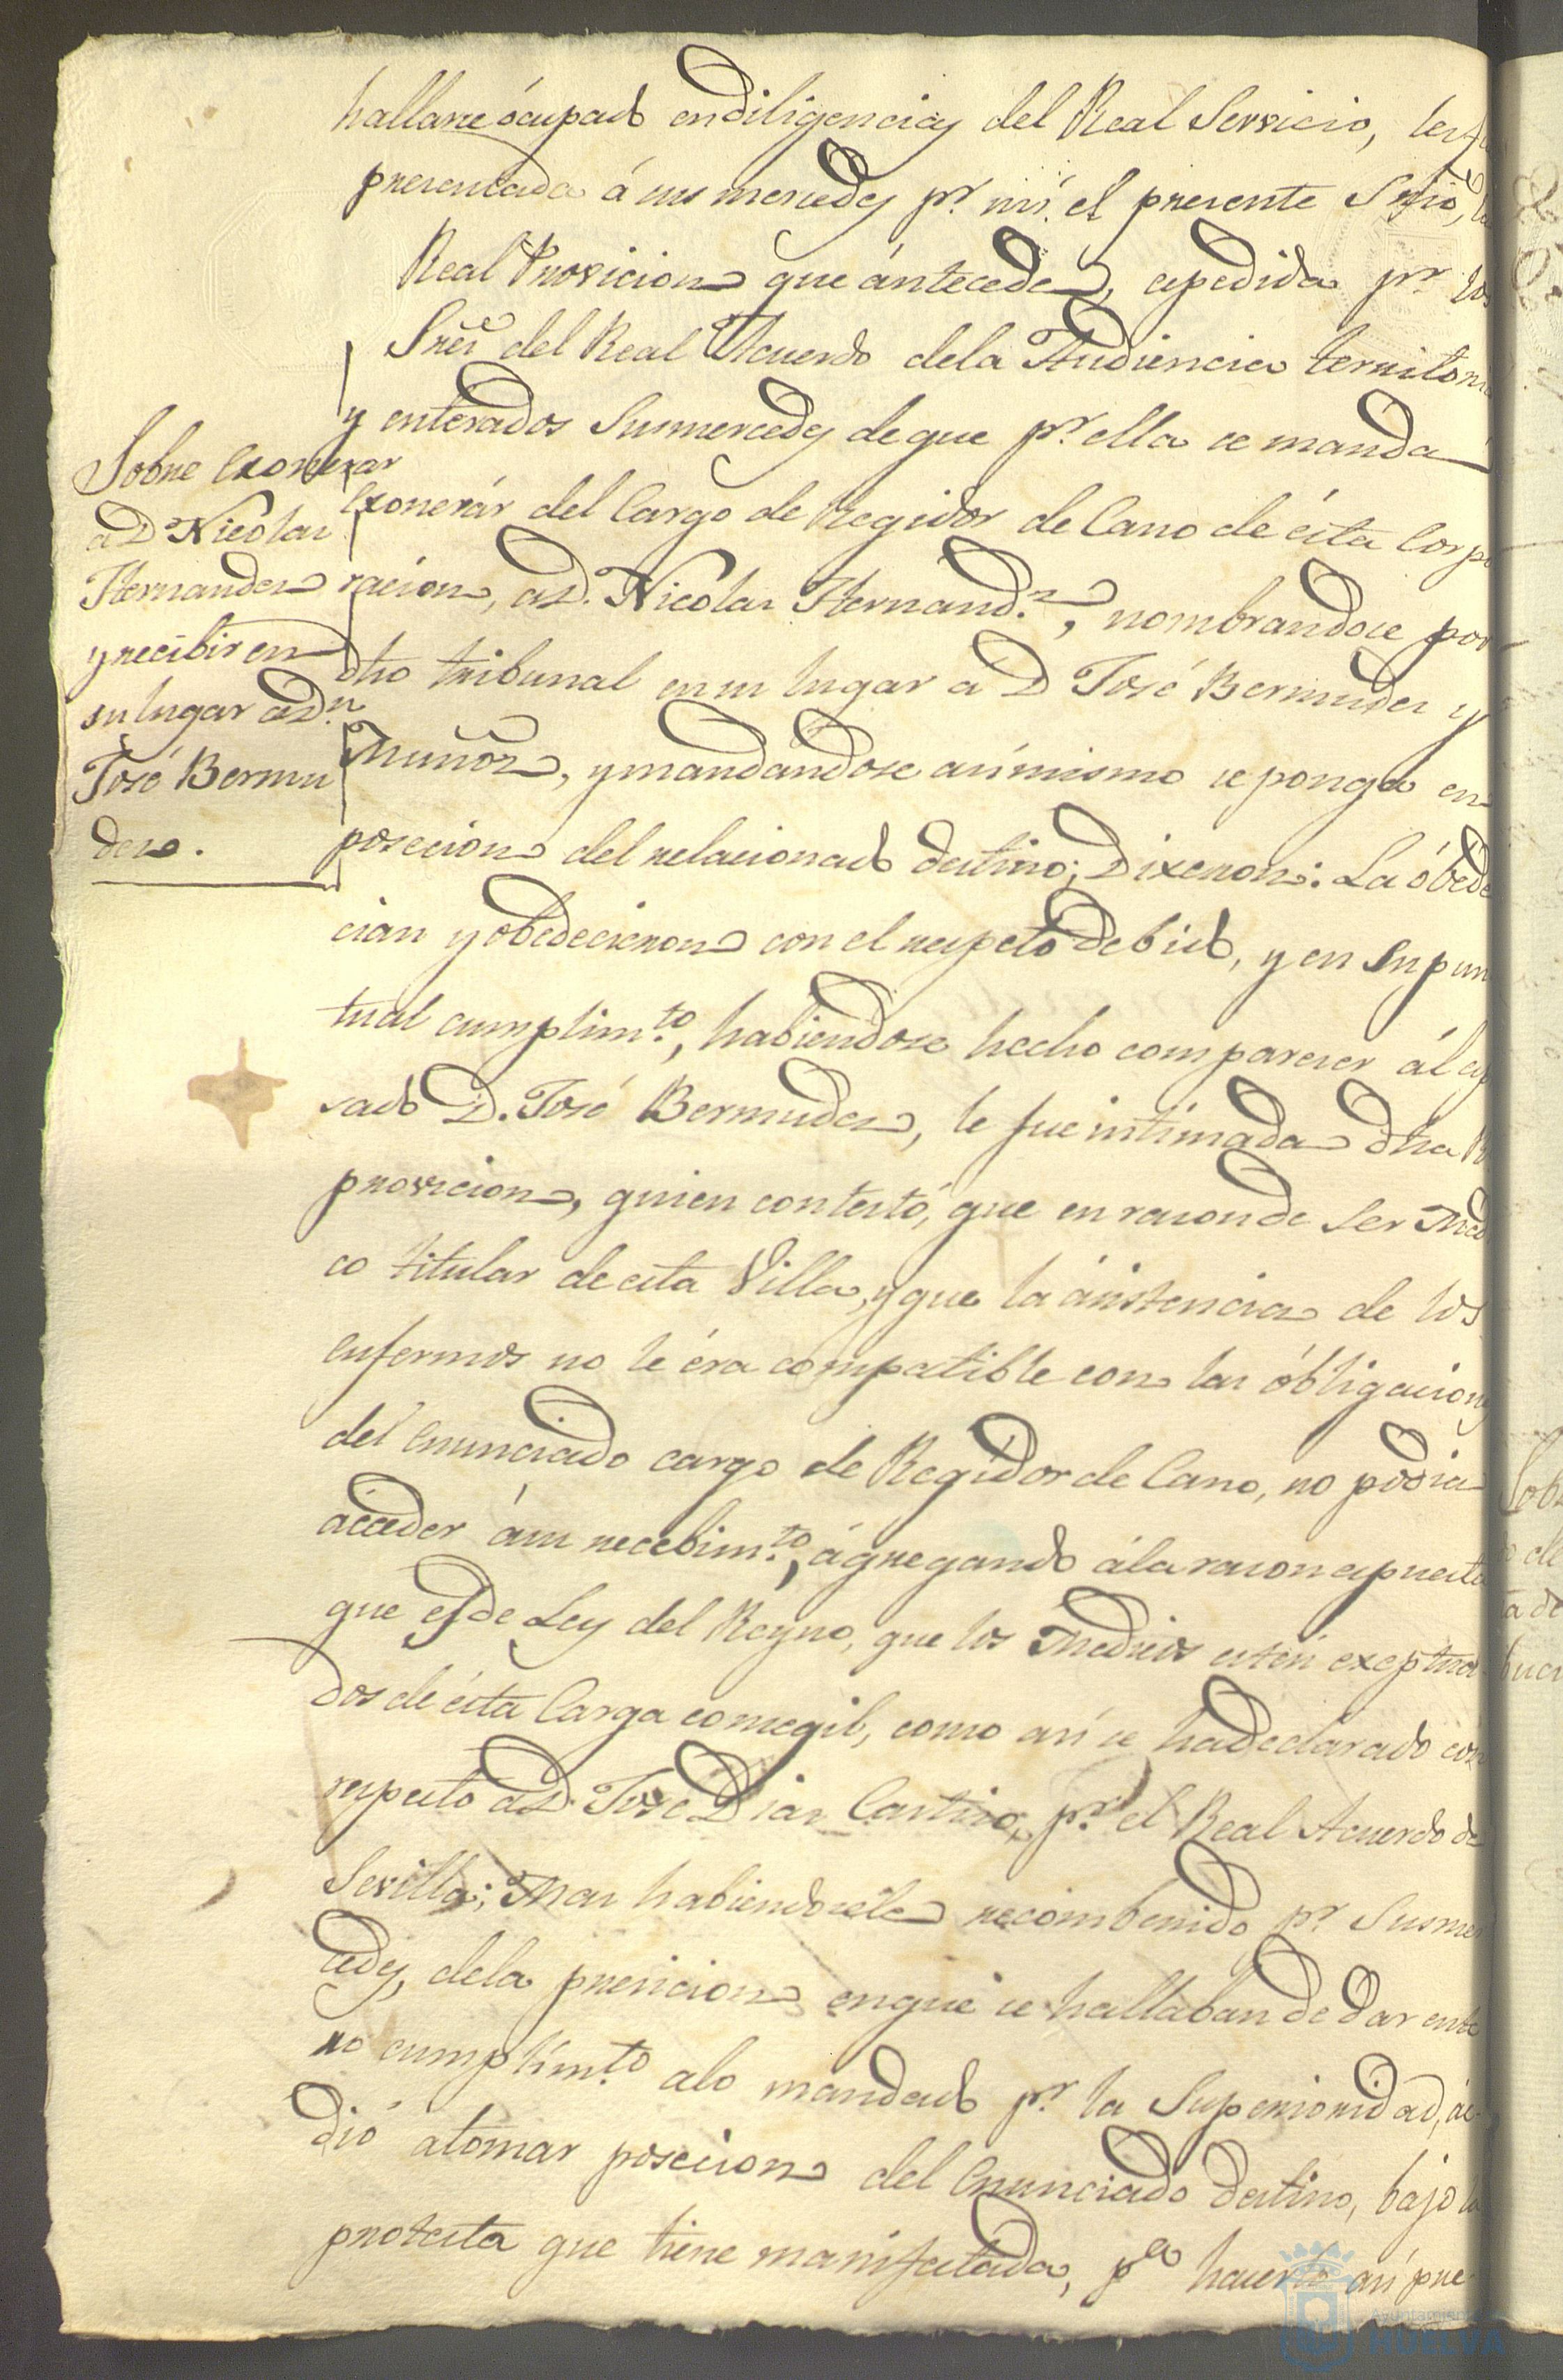 hallarse ócupado en diligencias del Real Servicio,
presentada á sus mercedes pr. mí el presente Srio,
Real Provicion que ántecede, espedida pr. los
Sres. del Real Acuerdo dela Audiencia territori
y enterados Susmercedes de que pr. ella se manda
Exonerár del Cargo de Regidor de Cano de ésta Corpo
racion, a D. Nicolas Hernandz., nombrandose por
dho tribunal en su lugar a D José Bermudes y
Muñóz, y mandandose asímismo se ponga en
posecion del relacionado destino; Dixeron: La óbede
cian y obedecieron con el respeto debido, y en Su pun
tual cumplimto., habiendose hecho comparecer ál es
sado D. José Bermudez, le fue intimada dha R
provicion, quien contestó, que en rason de ser Medi
co titular de esta Villa, y que la ásistencia de los
enfermos no le éra compatible con las óbligaciones
del Enunciado cargo de Regidor de Cano, no podia
ácceder á su recebimto., ágregando á la rason espuesta
que es de Ley del Reyno, que los Medicos estén exceptua
dos de ésta Carga consegil, como así se ha declarado con
respecto a D. José Dias Castizo, pr. el Real Acuerdo de
Sevilla; Mas habiendosele recombenido pr. Susmer
cedes, dela presicion en que se hallaban de dar ente
ro cumplimto. alo mandado pr. la Superioridad, ác
dió atomar posecion del Enunciado destino, bajo la
protesta que tiene manifestada, pa hacerlo así pre
Sobre Exonerar
a D Nicolas
Hernandez
y recibir en
su lugar a Dn.
José Bermu
dez.
Ayuntamiento
HUELVA